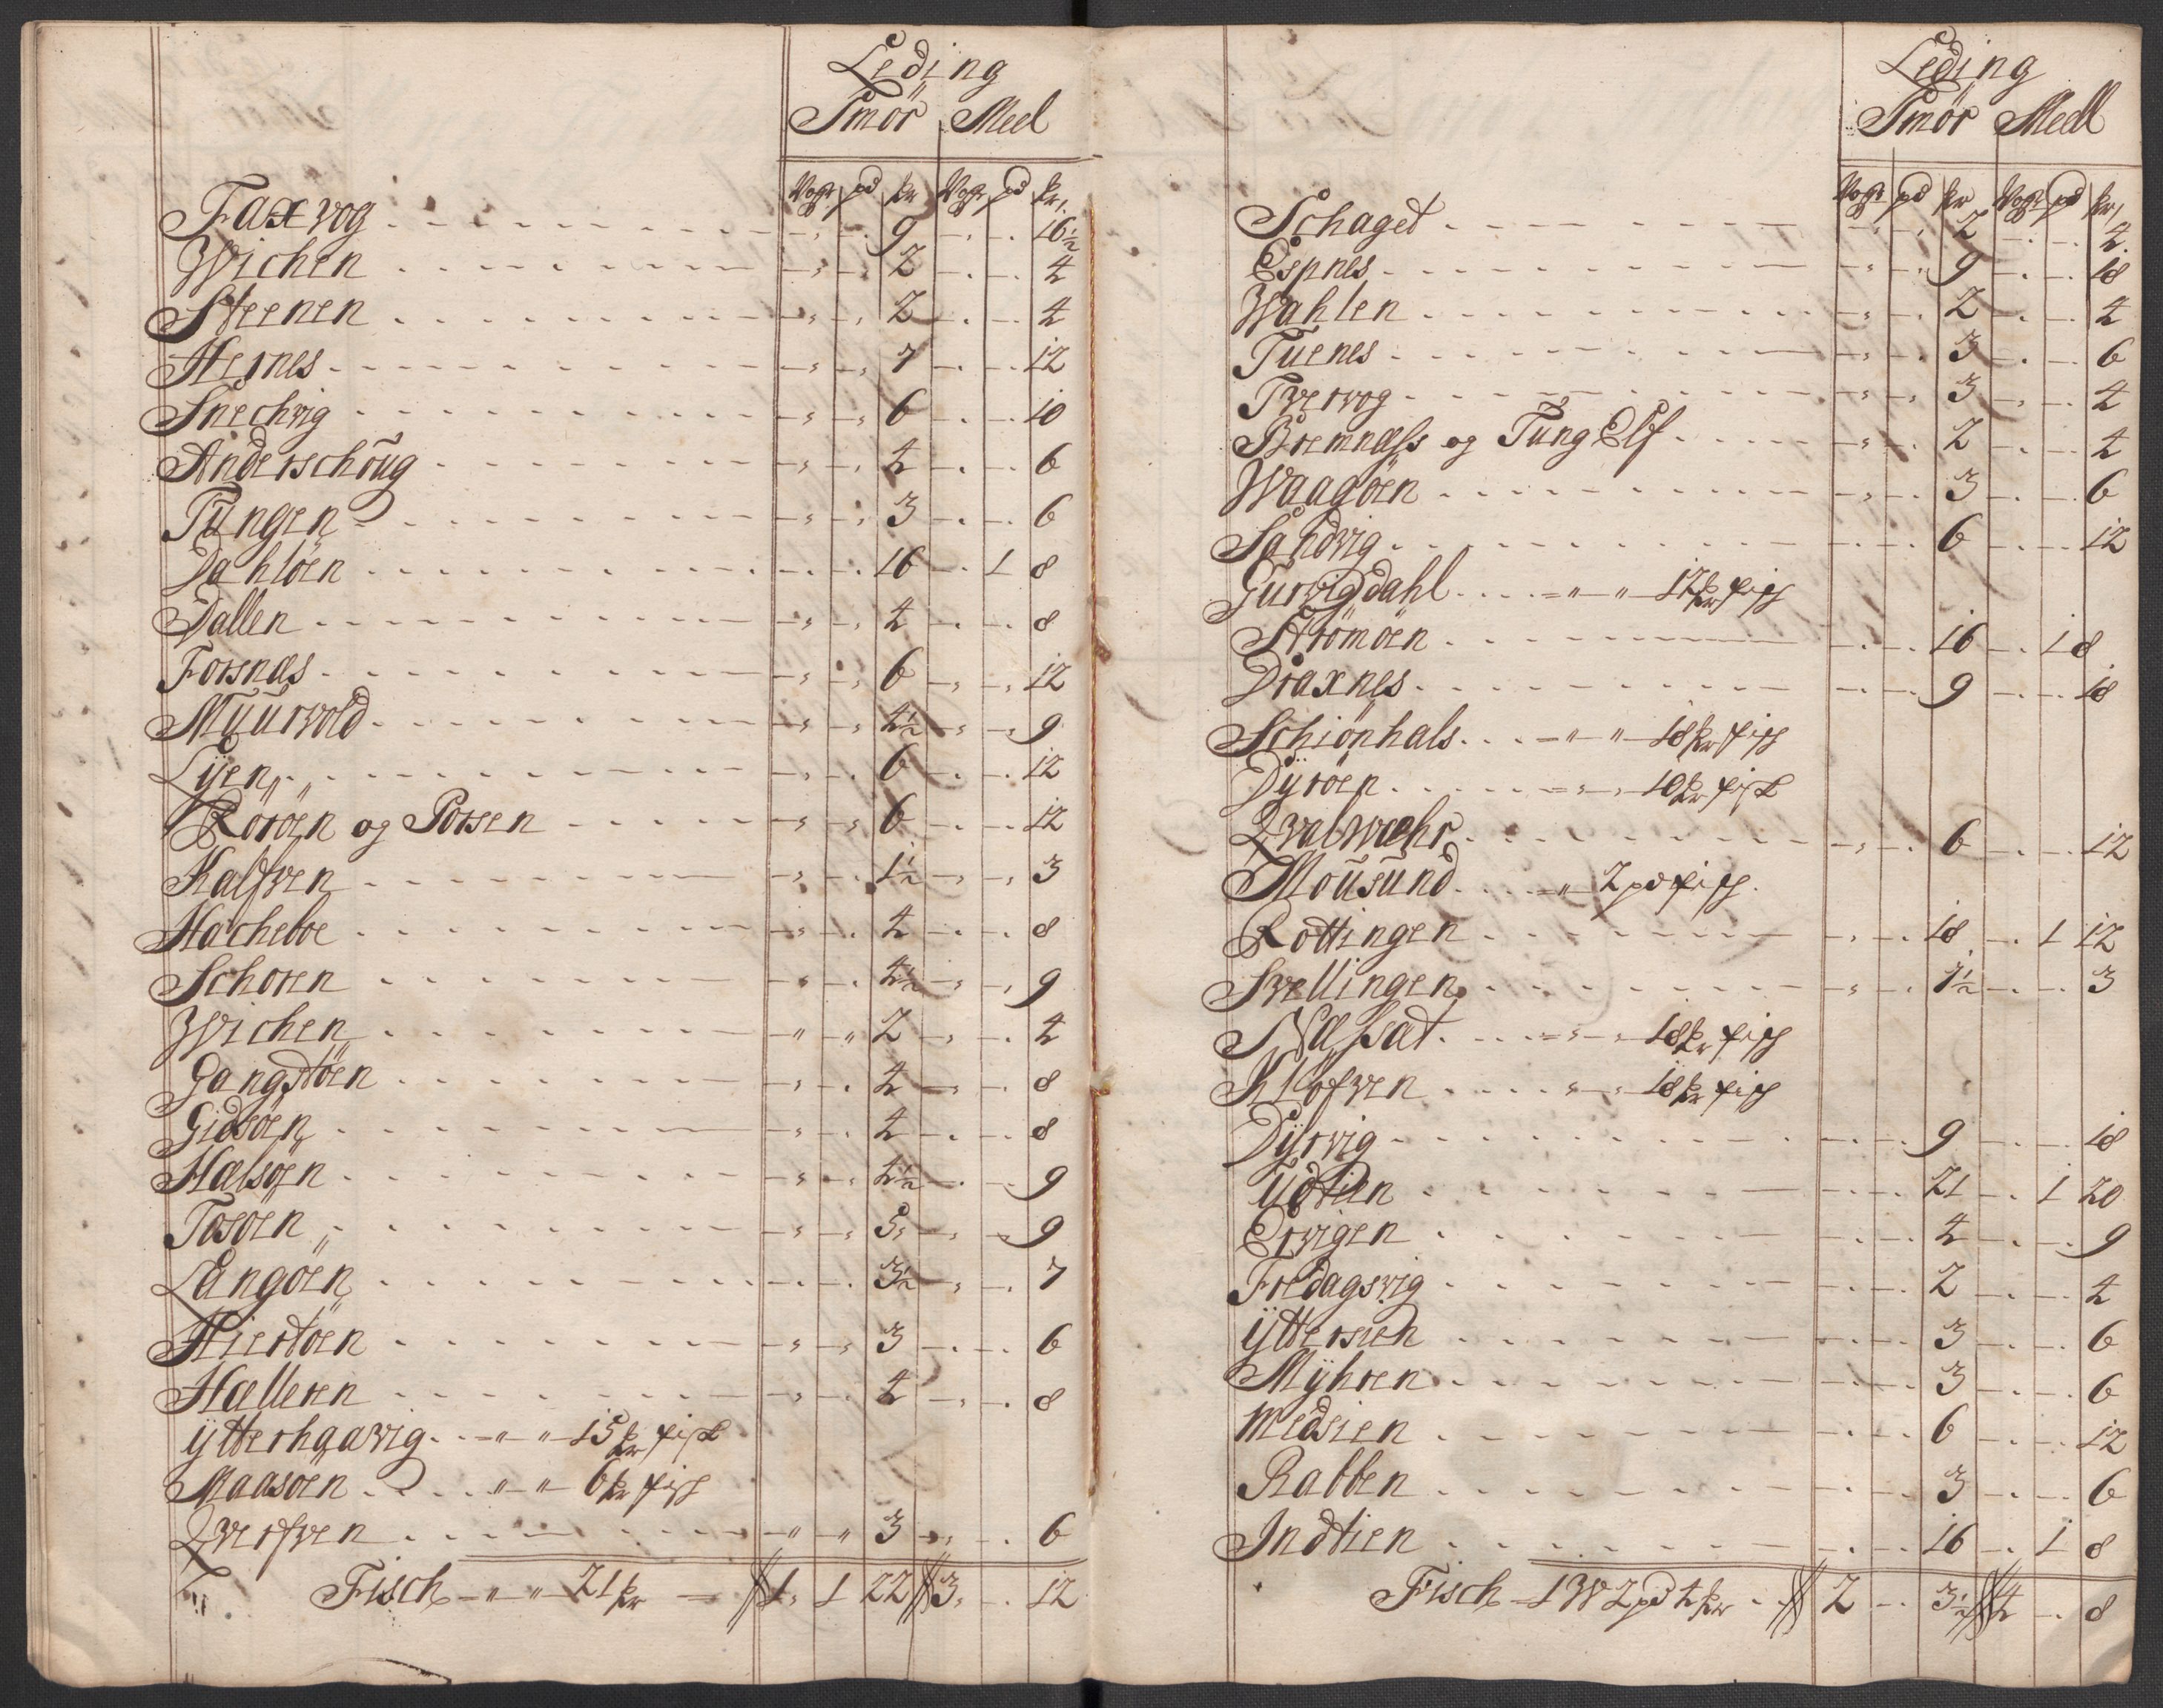 Leding
Smör Meel
Vogr pd kr Vogr pd kr
Faxvog 9 16½
Wichen 2 4
Steenen 2 4
Hernes 7 12
Snechvig 6 10
Anderschoüg 4 6
Tüngen 3 6
Dahlöen 16 1 8
Dallen 4 8
Forsnæs 6 12
Müürvold 4½ 9
Lÿen 6 12
Röröen og Porsen 6 12
Kalfven 1½ 3
Hacheboe 4 8
Schoren 4½ 9
Wichen 2 4
Gangstöen 4 8
Gidsöen 4 8
Halsöen 4½ 9
Tosöen 5 9
Langöen 3½ 7
Hiertöen 3 6
Hælleren 4 8
ÿtterhaavig 15 kr fisk
Maasöen 6 kr fisch
Qverfven 3 6
Fisch 21 kr 1 1 22 3 12
Leding
Smör Meell
Vogr pd kr Vogr pd kr
Schaget 2 4
Espnes 9 18
Wahlen 2 4
Tuenes 3 6
Tvervog 3 4
Bremnæss og Tüng Elf 2 4
Waagöen 3 6
Sandvig 6 12
Gurvigdahl 12 kr fisch
Strömöen 16 1 8
Draxnes 9 18
Schiönhals 18 kr fisch
Dÿröen 10 kr fisk
Qvalwæhr 6 12
Moüsünd 2 pd fisch
Rottingen 18 1 12
Svellingen 1½ 3
Næssat 18 kr fisch
Klofven 18 kr fisch
Dÿrvig 9 18
Ydtien 21 1 20
Ervigen 4 9
Fredagsvig 2 4
ÿttersien 3 6
Mÿhren 3 6
Medsien 6 12
Rabben 3 6
Indtien 16 1 8
Fisch 1 W 2 pd 4 kr 2 3½ 4 8